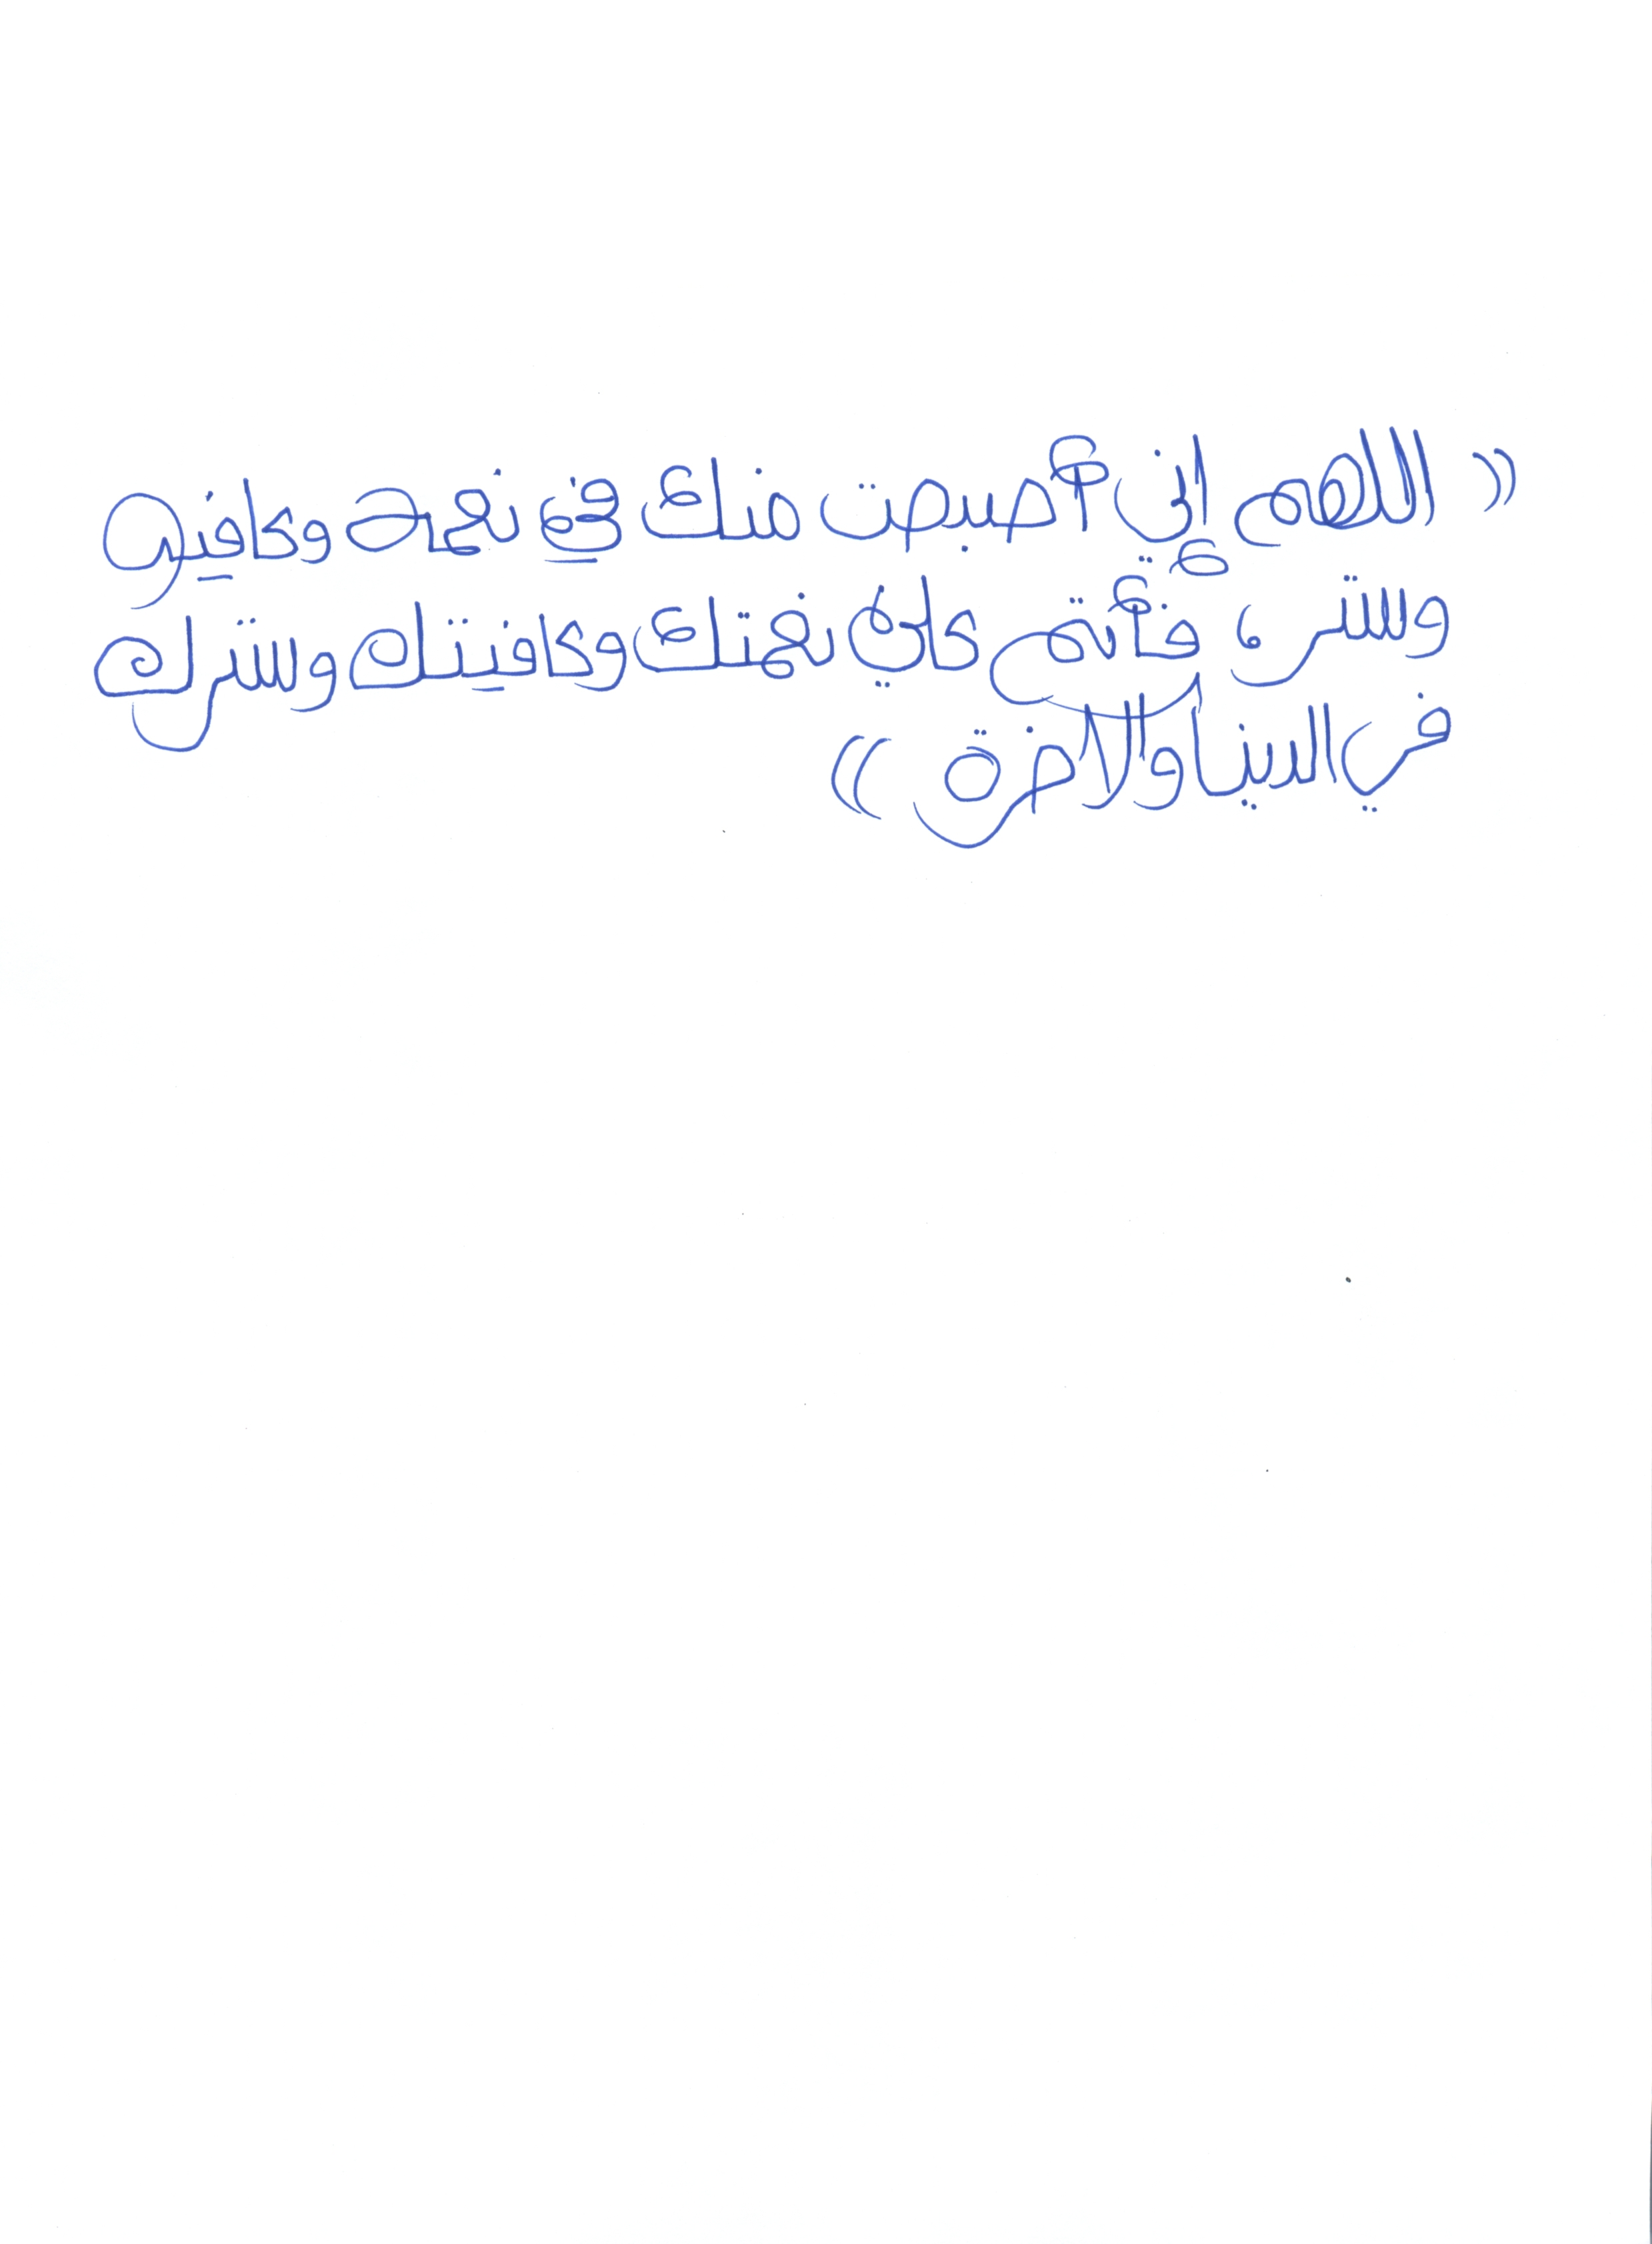 (( اللهم إني أصبحت منك في نعمة وعافية
وستر ، فأتم علي نعمتك وعافيتك وسترك
في الدنيا والآخرة ))